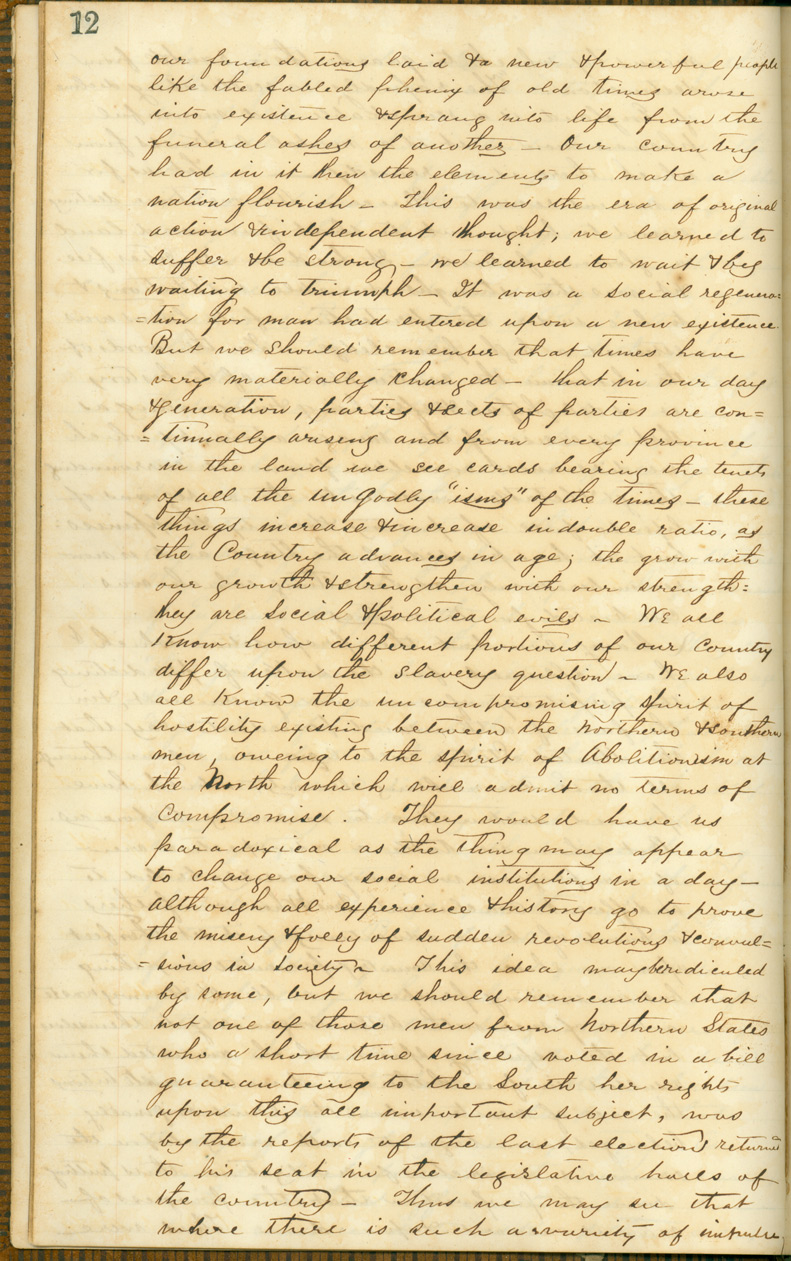 12
our foundations laid & a new & powerful people
like the fabled phenix of old times arose
into existence & sprang into life from the
funeral ashes of another – Our country
had in it then the elements to make a
nation flourish – This was the era of original
action & independent thought; we learned to
suffer & be strong – we learned to wait & by
waiting to triumph – It was a social regenera=
=tion for man had entered upon a new existence
But we should remember that times have
very materially changed – that in our day
& generation, parties & sects of parties are con=
=tinually arising and from every province
in the land we see cards bearing the tenets
of all the ungodly "isms" of the times – these
things increase & increase in double ratio, as
the Country advances in age; the grow with
our growth & strengthen with our strength:
they are social & political evils – We all
Know how different portions of our Country
differ upon the slavery question – We also
all Know the uncompromising spirit of
hostility existing between the Northern & southern
men, oweing to the spirit of Abolitionism at
the North which will admit no terms of
compromise. They would have us
paradoxical as the thing may appear
to change our social institutions in a day –
although all experience & history go to prove
the misery & folly of sudden revolutions & convul=
=sions in society – This idea may be ridiculed
by some, but we should remember that
not one of those men from Northern States
who a short time since voted in a bill
guaranteeing to the South her rights
upon this all important subject, was
by the reports of the last election returned
to his seat in the legislative halls of
the country – Thus we may see that
where there is such a variety of impulse